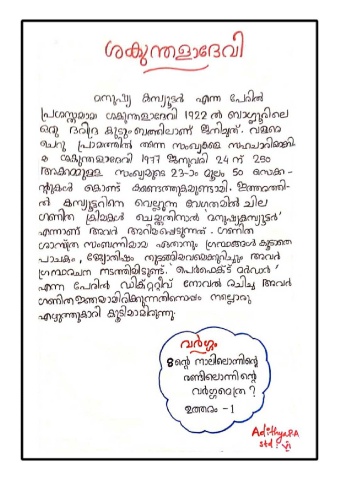 ശകുന്തളാദേവി
മനുഷ്യ കമ്പ്യൂട്ടർ എന്ന പേരിൽ
പ്രശസ്തയായ ശകുന്തളാദേവി 1922 ൽ ബാഗ്ലൂരിലെ
ഒരു ദരിദ്ര കുടുംബത്തിലാണ് ജനിച്ചത്. വളരെ
ചെറു പ്രായത്തിൽ തന്നെ സംഖ്യകളെ സഹചാരിയാക്കി
യ ശകുന്തളാദേവി 1977 ജനുവരി 24 ന് 250
അക്കമുള്ള സംഖ്യയുടെ 23-ാം മൂലം 50 സെക്ക-
ന്റുകൾ കൊണ്ട് കണ്ടെത്തുകയുണ്ടായി. ഇത്തരത്തി-
ൽ കമ്പ്യൂട്ടറിനെ വെല്ലുന്ന വേഗതയിൽ ചില
ഗണിത ക്രിയകൾ ചെയ്തതിനാൽ 'മനുഷ്യകമ്പ്യൂട്ടർ'
എന്നാണ് അവർ അറിയപ്പെടുന്നത്. ഗണിത
ശാസ്ത്ര സംബന്ധിയായ ഏതാനും ഗ്രന്ഥങ്ങൾ കൂടാതെ
പാചകം, ജ്യോതിഷം തുടങ്ങിയവയെക്കുറിച്ചും അവർ
ഗ്രന്ഥരചന നടത്തിയിട്ടുണ്ട്. 'പെർഫെക്ട് മർഡർ'
എന്ന പേരിൽ ഡിക്റ്ററ്റീവ് നോവൽ രചിച്ച അവർ
ഗണിതജ്ഞയായിരിക്കുന്നതിനൊപ്പം നല്ലൊരു
എഴുത്തുകാരി കൂടിയായിരുന്നു.
വർഗ്ഗം
8ന്റെ നാലിലൊന്നിന്റെ
രണ്ടിലൊന്നിന്റെ
വർഗ്ഗമെത്ര?
ഉത്തരം - 1
Adithya P.A
std : VI